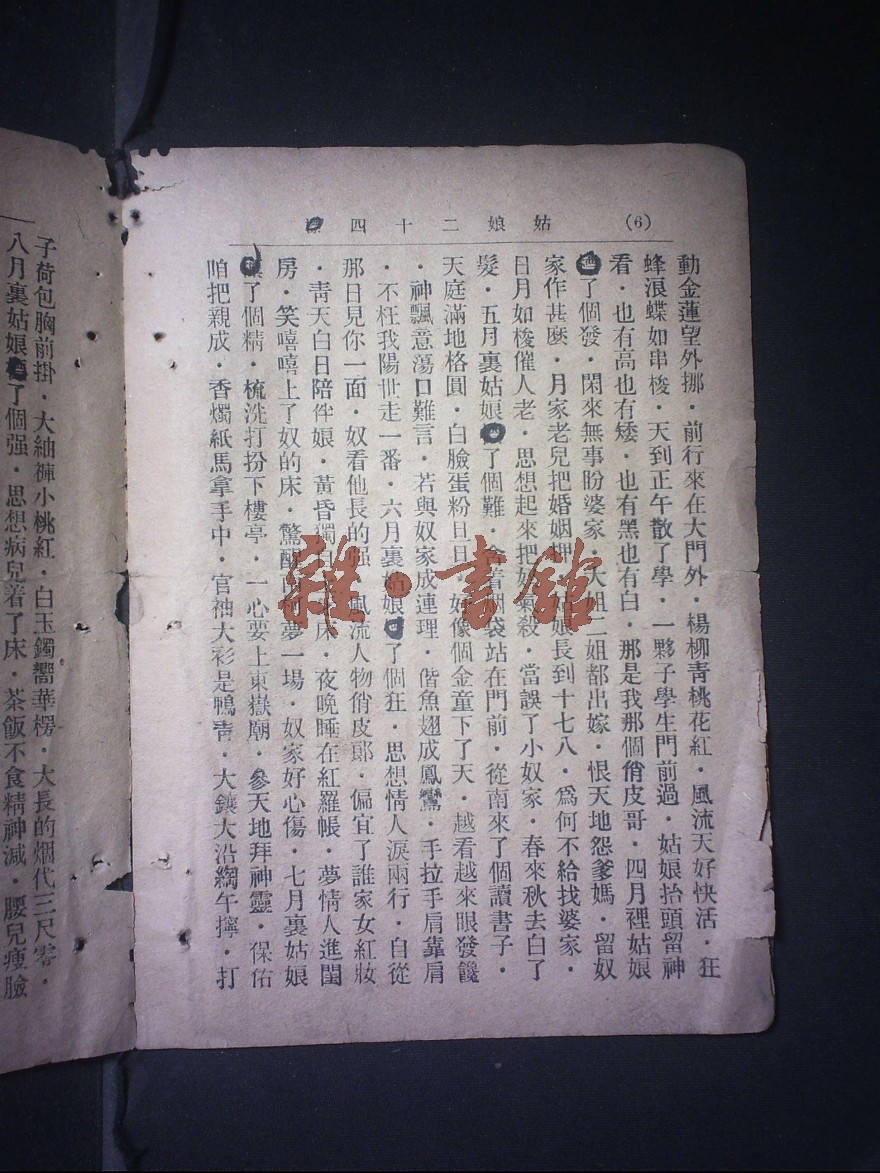 (6) 姑娘二十四
動金蓮望外挪．前行來在大門外．楊柳青桃花紅．風流天好快活．狂
蜂浪蝶如串梭．天到正午散了學．一夥子學生門前過．姑娘抬頭留神
看．也有高也有矮．也有黑也有白．那是我那個俏皮哥．四月裡姑娘
了個發．閑來無事盼婆家．大姐二姐都出嫁．恨天地怨爹媽．留奴
家作甚麽．月家老兒把婚姻押．姑娘長到十七八．爲何不給找婆家．
日月如梭催人老．思想起來把奴氣殺．當誤了小奴家．春來秋去白了
髮．五月裏姑娘了個難．含着烟袋站在門前．從南來了個讀書子．
天庭滿地格圓．白臉蛋粉日日．好像個金童下了天．越看越來眼發饞
．神飄意蕩口難言．若與奴家成連理．偕魚翅成鳳鸞．手拉手肩靠肩
．不枉我陽世走一番．六月裏姑娘了個狂．思想情人淚兩行．自從
那日見你一面．奴看他長的强．風流人物俏皮郞．偏宜了誰家女紅妝
．靑天白日陪伴娘．黃昏獨自床．夜晚睡在紅羅帳．夢情人進閨
房．笑嘻嘻上了奴的床．驚醒夢一場．奴家好心傷．七月裏姑娘
了個精．梳洗打扮下樓亭．一心要上東嶽廟．參天地拜神靈．保佑
咱把親成．香燭紙馬拿手中．官袖大衫是鴨靑．大鑲大沿縐午擰．打
子荷包胸前掛．大紬褲小桃紅．白玉鐲嚮華楞．大長的烟代三尺零．
八月裏姑娘了個强．思想病兒着了床．茶飯不食精神減．腰兒瘦臉
雜·書館